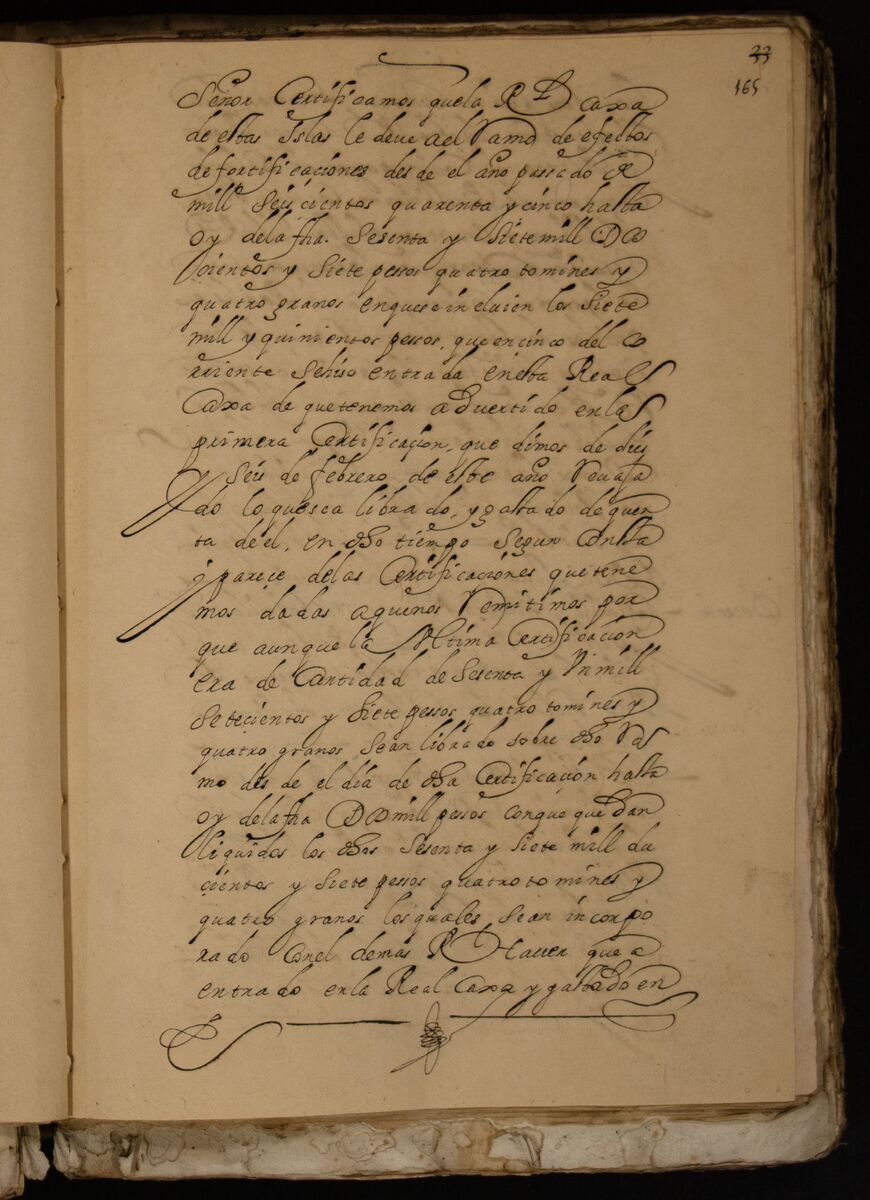 33
165
Señor Certificamos quela Rl Caxa
de estas Islas le deve ael Ramo de efectos
defortificaciones desde el año passado de
mill Seiscientos quarenta ycinco hasta
oy delafha. Sesenta y Sietemill Do
cientos y Siete pessos quatro tomines y
quatro granos enquese incluien los Siete
mill yquinientos pessos, que encinco del co
rriente Sehiso entrada enesta Real
Caxa de quetenemos advertido enla
primera Certificacion, que dimos de dies
y Seis de febrero de este año Revaja
do loquesea librado, ygastado dequen
ta de el, en dho tiempo Segun Consta
y pareçe delas Certificaciones quetene
mos dadas aquenos Remitimos por
que aunquela Ultima Certificacion
era de Cantidad de Sesenta y Un mill
Setecientos y Siete pessos quatro tomines y
quatro granos Sean librado sobre dho Ra
mo des de el dia de dha Certificacion hasta
oy delafha Dos mill pesos conque quedan
liquidos los dhos Sesenta y Siete mill du
cientos y Siete pessos quatro tomines y
quatro granos los quales Sean incorpo
rado Conel demas Rl Haver que a
entrado enla Real Caxa y gastado en